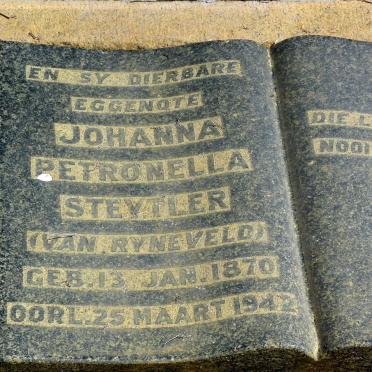 EN SY DIERBARE
EGGENOTE
JOHANNA
PETRONELLA
STEYTLER
(VAN RYNEVELD)
GEB. 13 JAN. 1870
OORL. 25 MAART 1942
DIE
NOOI